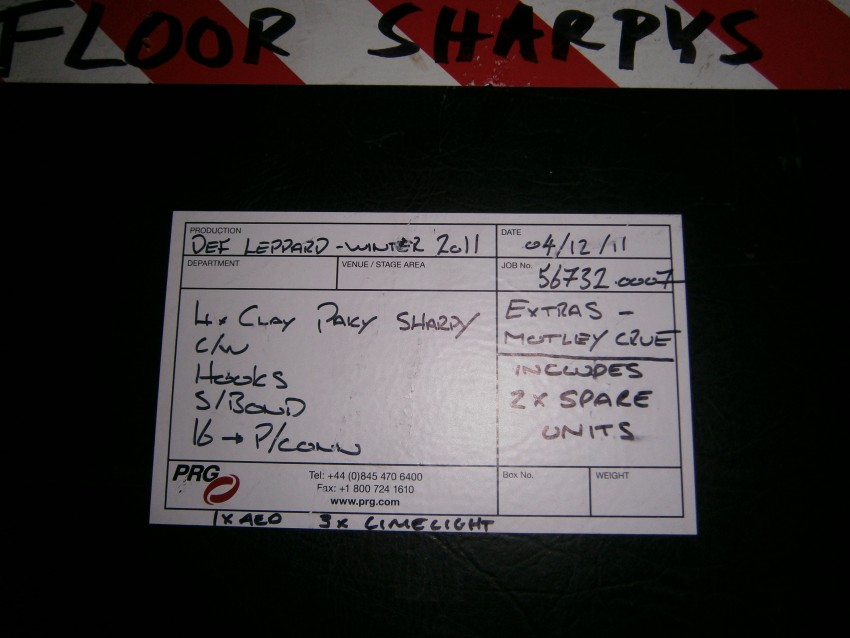 FLOOR SHARPYS
PRODUCTION
DEF LEPPARD - WINTER 2011
DATE
04/12/11
DEPARTMENT
VENUE / STAGE AREA
JOB No.
56732.0007
4x CLAY PAKY SHARPY
C/W
HOOKS
S/BOND
16 → P/CONN
EXTRAS -
MOTLEY CRUE
INCLUDES
2 x SPARE
UNITS
PRG
Tel: +44 (0)845 470 6400
Fax: +1 800 724 1610
www.prg.com
Box No.
WEIGHT
3x LIMELIGHT